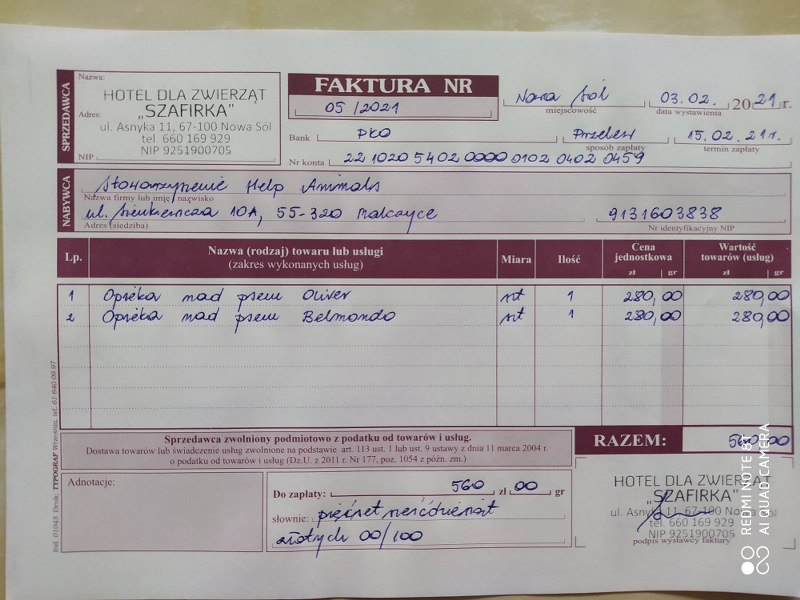 SPRZEDAWCA
Nazwa:
HOTEL DLA ZWIERZĄT
"SZAFIRKA"
Adres:
ul. Asnyka 11, 67-100 Nowa Sól
tel. 660 169 929
NIP 9251900705
NIP
FAKTURA NR
05/2021
Nowa Sól
miejscowość
03.02. 2021r.
data wystawienia
Bank PKO
Przelew
sposób zapłaty
15.02.21r.
termin zapłaty
Nr konta 22 1020 5402 0000 0102 0402 0459
NABYWCA
Stowarzyszenie Help Animals
Nazwa firmy lub imię i nazwisko
ul. Sienkiewicza 10A, 55-320 Malczyce
9131603838
Adres (siedziba)
Nr identyfikacyjny NIP
Lp.
Nazwa (rodzaj) towaru lub usługi
(zakres wykonanych usług)
Miara
Ilość
Cena
jednostkowa
zł gr
Wartość
towarów (usług)
zł gr
1 Opieka nad psem Oliver szt 1 280,00 280,00
2 Opieka nad psem Belmondo szt 1 280,00 280,00
Sprzedawca zwolniony podmiotowo z podatku od towarów i usług.
Dostawa towarów lub świadczenie usług zwolnione na podstawie art. 113 ust. 1 lub ust. 9 ustawy z dnia 11 marca 2004 r.
o podatku od towarów i usług (Dz.U. z 2011 r. Nr 177, poz. 1054 z późn. zm.)
RAZEM: 560,00
Adnotacje:
Do zapłaty: 560 zł 00 gr
słownie: pięćset sześćdziesiąt
złotych 00/100
HOTEL DLA ZWIERZĄT
"SZAFIRKA"
ul. Asnyka 11, 67-100 Nowa Sól
tel. 660 169 929
NIP 9251900705
podpis wystawcy faktury
TYPOGRAF Września, tel. 61 640 09 97
REDMI NOTE 8T
AI QUAD CAMERA